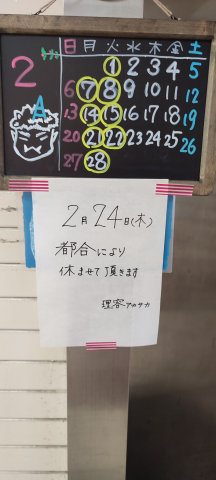 日月火水木金土
2
1 2 3 4 5
6 7 8 9 10 11 12
13 14 15 16 17 18 19
20 21 22 23 24 25 26
27 28
2月24日(木)
都合により
休ませて頂きます
理容アカサカ